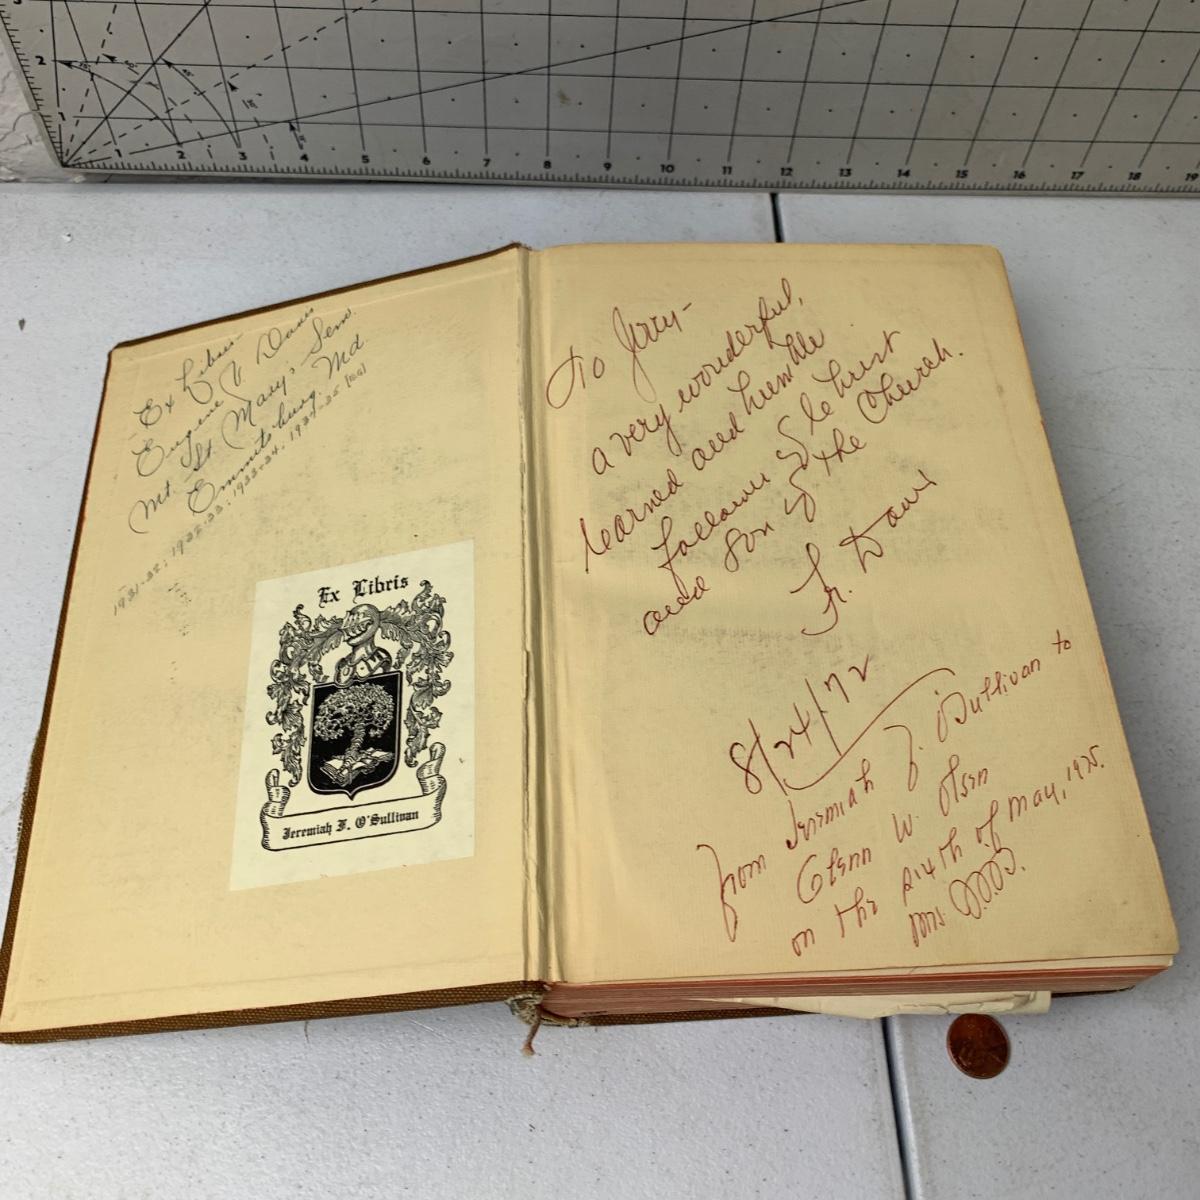 Ex Libris
Eugene V Davis
Mt. St Mary's Sem.
Emmitsburg, Md.
1931-32; 1932-33; 1933-34; 1934-35
Ex Libris
Jeremiah F. O'Sullivan
To Jerry-
a very wonderful,
learned and humble
follower of Christ
and son of the Church.
Fr. Davis
8/24/72
from Jeremiah F. O'Sullivan to
Glenn W. Olsen
on the sixth of May, 1975.
2
1 2 3 4 5 6 7 8 9 10 11 12 13 14 15 16 17 18 19